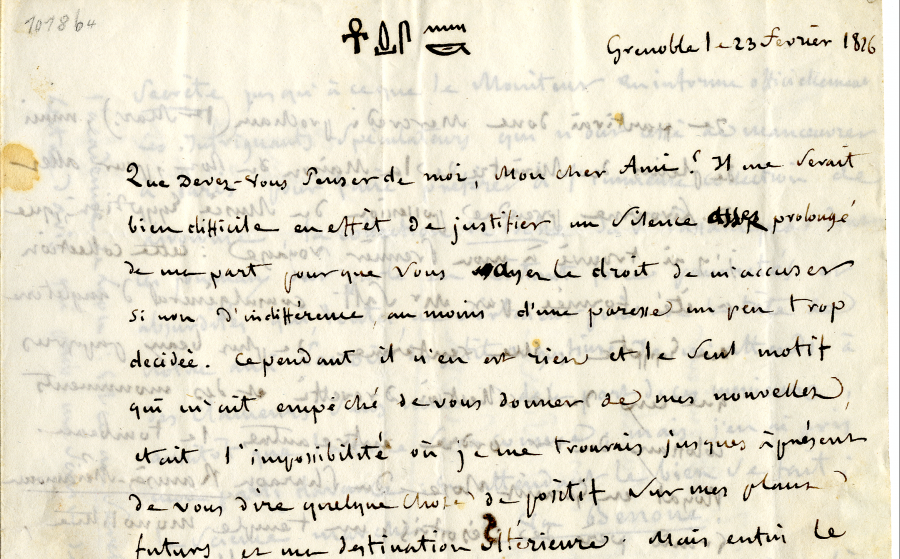 101864
𓋹𓍑𓋴 𓏠𓎟
Grenoble le 23 Février 1826
Que Devez-vous Penser de moi, Mon cher Ami? Il me Serait
bien difficile en effet de justifier un Silence assez prolongé
de ma part pour que vous ayez le droit de m'accuser
si non d'indifférence, au moins d'une paresse un peu trop
décidée. Cependant il n'en est rien et le Seul motif
qui m'ait empêché de vous donner de mes nouvelles,
etait l'impossibilité où je me trouvais jusques àprésent
de vous dire quelque chose de positif sur mes plans
futurs et ma destination ultérieure. Mais enfin le